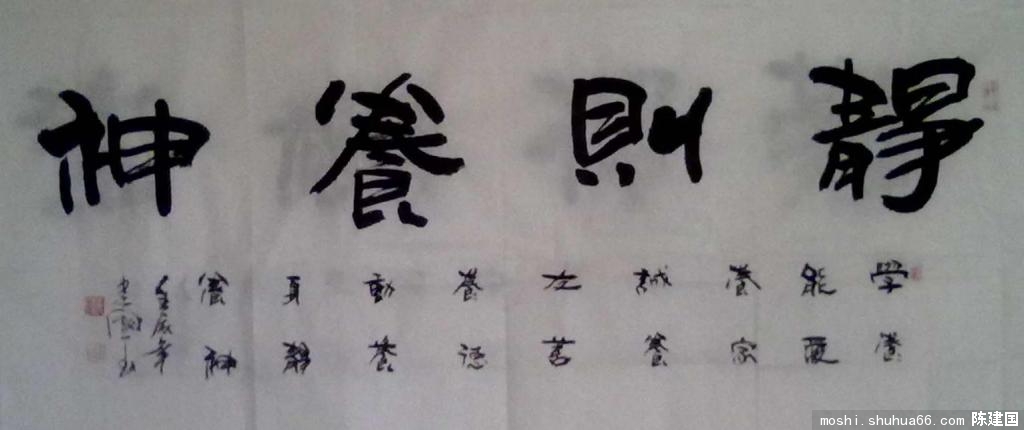 靜則養神
学養
能
養家
誠養
友善
養德
動養
身靜
養神
moshi.shuhua66.com 陈建国